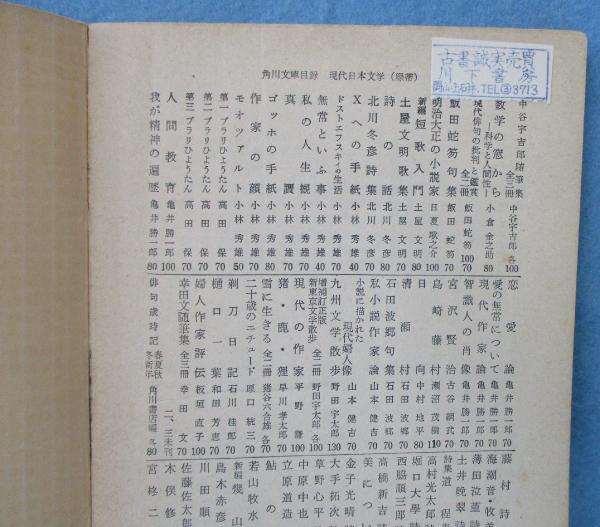 角川文庫目録 現代日本文学（緑帯）
古書誠実売買
川下書房
岡山・上石井.TEL③3713
中谷宇吉郎随筆集 全三冊 中谷宇吉郎 各100
数学の窓から―科学と人間性― 小倉金之助 80
現代俳句の批判と鑑賞 全二冊 飯田蛇笏 100 70
飯田蛇笏句集 飯田蛇笏 70
明治大正の小説家 日夏耿之介 100
新編短歌入門 土屋文明 80
土屋文明歌集 土屋文明 70
詩の話 北川冬彦 80
北川冬彦詩集 北川冬彦 70
Xへの手紙 小林秀雄 40
ドストエフスキイの生活 小林秀雄 70
無常といふ事 小林秀雄 40
私の人生観 小林秀雄 70
真贋 小林秀雄 70
ゴッホの手紙 小林秀雄 80
作家の顔 小林秀雄 70
モオツァルト 小林秀雄 50
第一ブラリひょうたん 高田保 70
第二ブラリひょうたん 高田保 70
第三ブラリひょうたん 高田保 70
人間教育 亀井勝一郎 100
我が精神の遍歴 亀井勝一郎 80
恋愛論 亀井勝一郎 70
愛の無常について 亀井勝一郎 70
現代作家論 亀井勝一郎 70
智識人の肖像 亀井勝一郎 70
宮沢賢治 古谷綱武 70
島崎藤村 瀬沼茂樹 110
日向 中村地平 80
清瀬村 石田波郷 70
石田波郷句集 石田波郷 70
私小説作家論 山本健吉 70
小説に描かれた現代婦人像 山本健吉 70
九州文学散歩 野田宇太郎 130
増補訂正版新東京文学散歩 全二冊 野田宇太郎 各100
現代の作家 平野謙 100
猪・鹿・狸 早川孝太郎 70
雪に生きる 全二冊 猪谷六合雄 各80
二十歳のエチュード 原口統三 70
剃刀日記 石川桂郎 70
樋口一葉 和田芳恵 70
婦人作家評伝 板垣直子 100
幸田文随筆集 全三冊 幸田文 70
二、三未刊
俳句歳時記 春夏秋冬新年 角川書店編 各80
藤村詩
海潮音・牧羊
薄田泣菫詩
土井晩翠
詩集道程
高村光太郎
堀口大学詩
西脇順三郎
高橋新吉詩
美につい
金子光晴詩
大手拓次
草野心平
中原中也
立原道造
鮎の
若山牧水
新編幾山
島木赤彦
川田順
佐藤佐太郎
木俣修
宮柊二